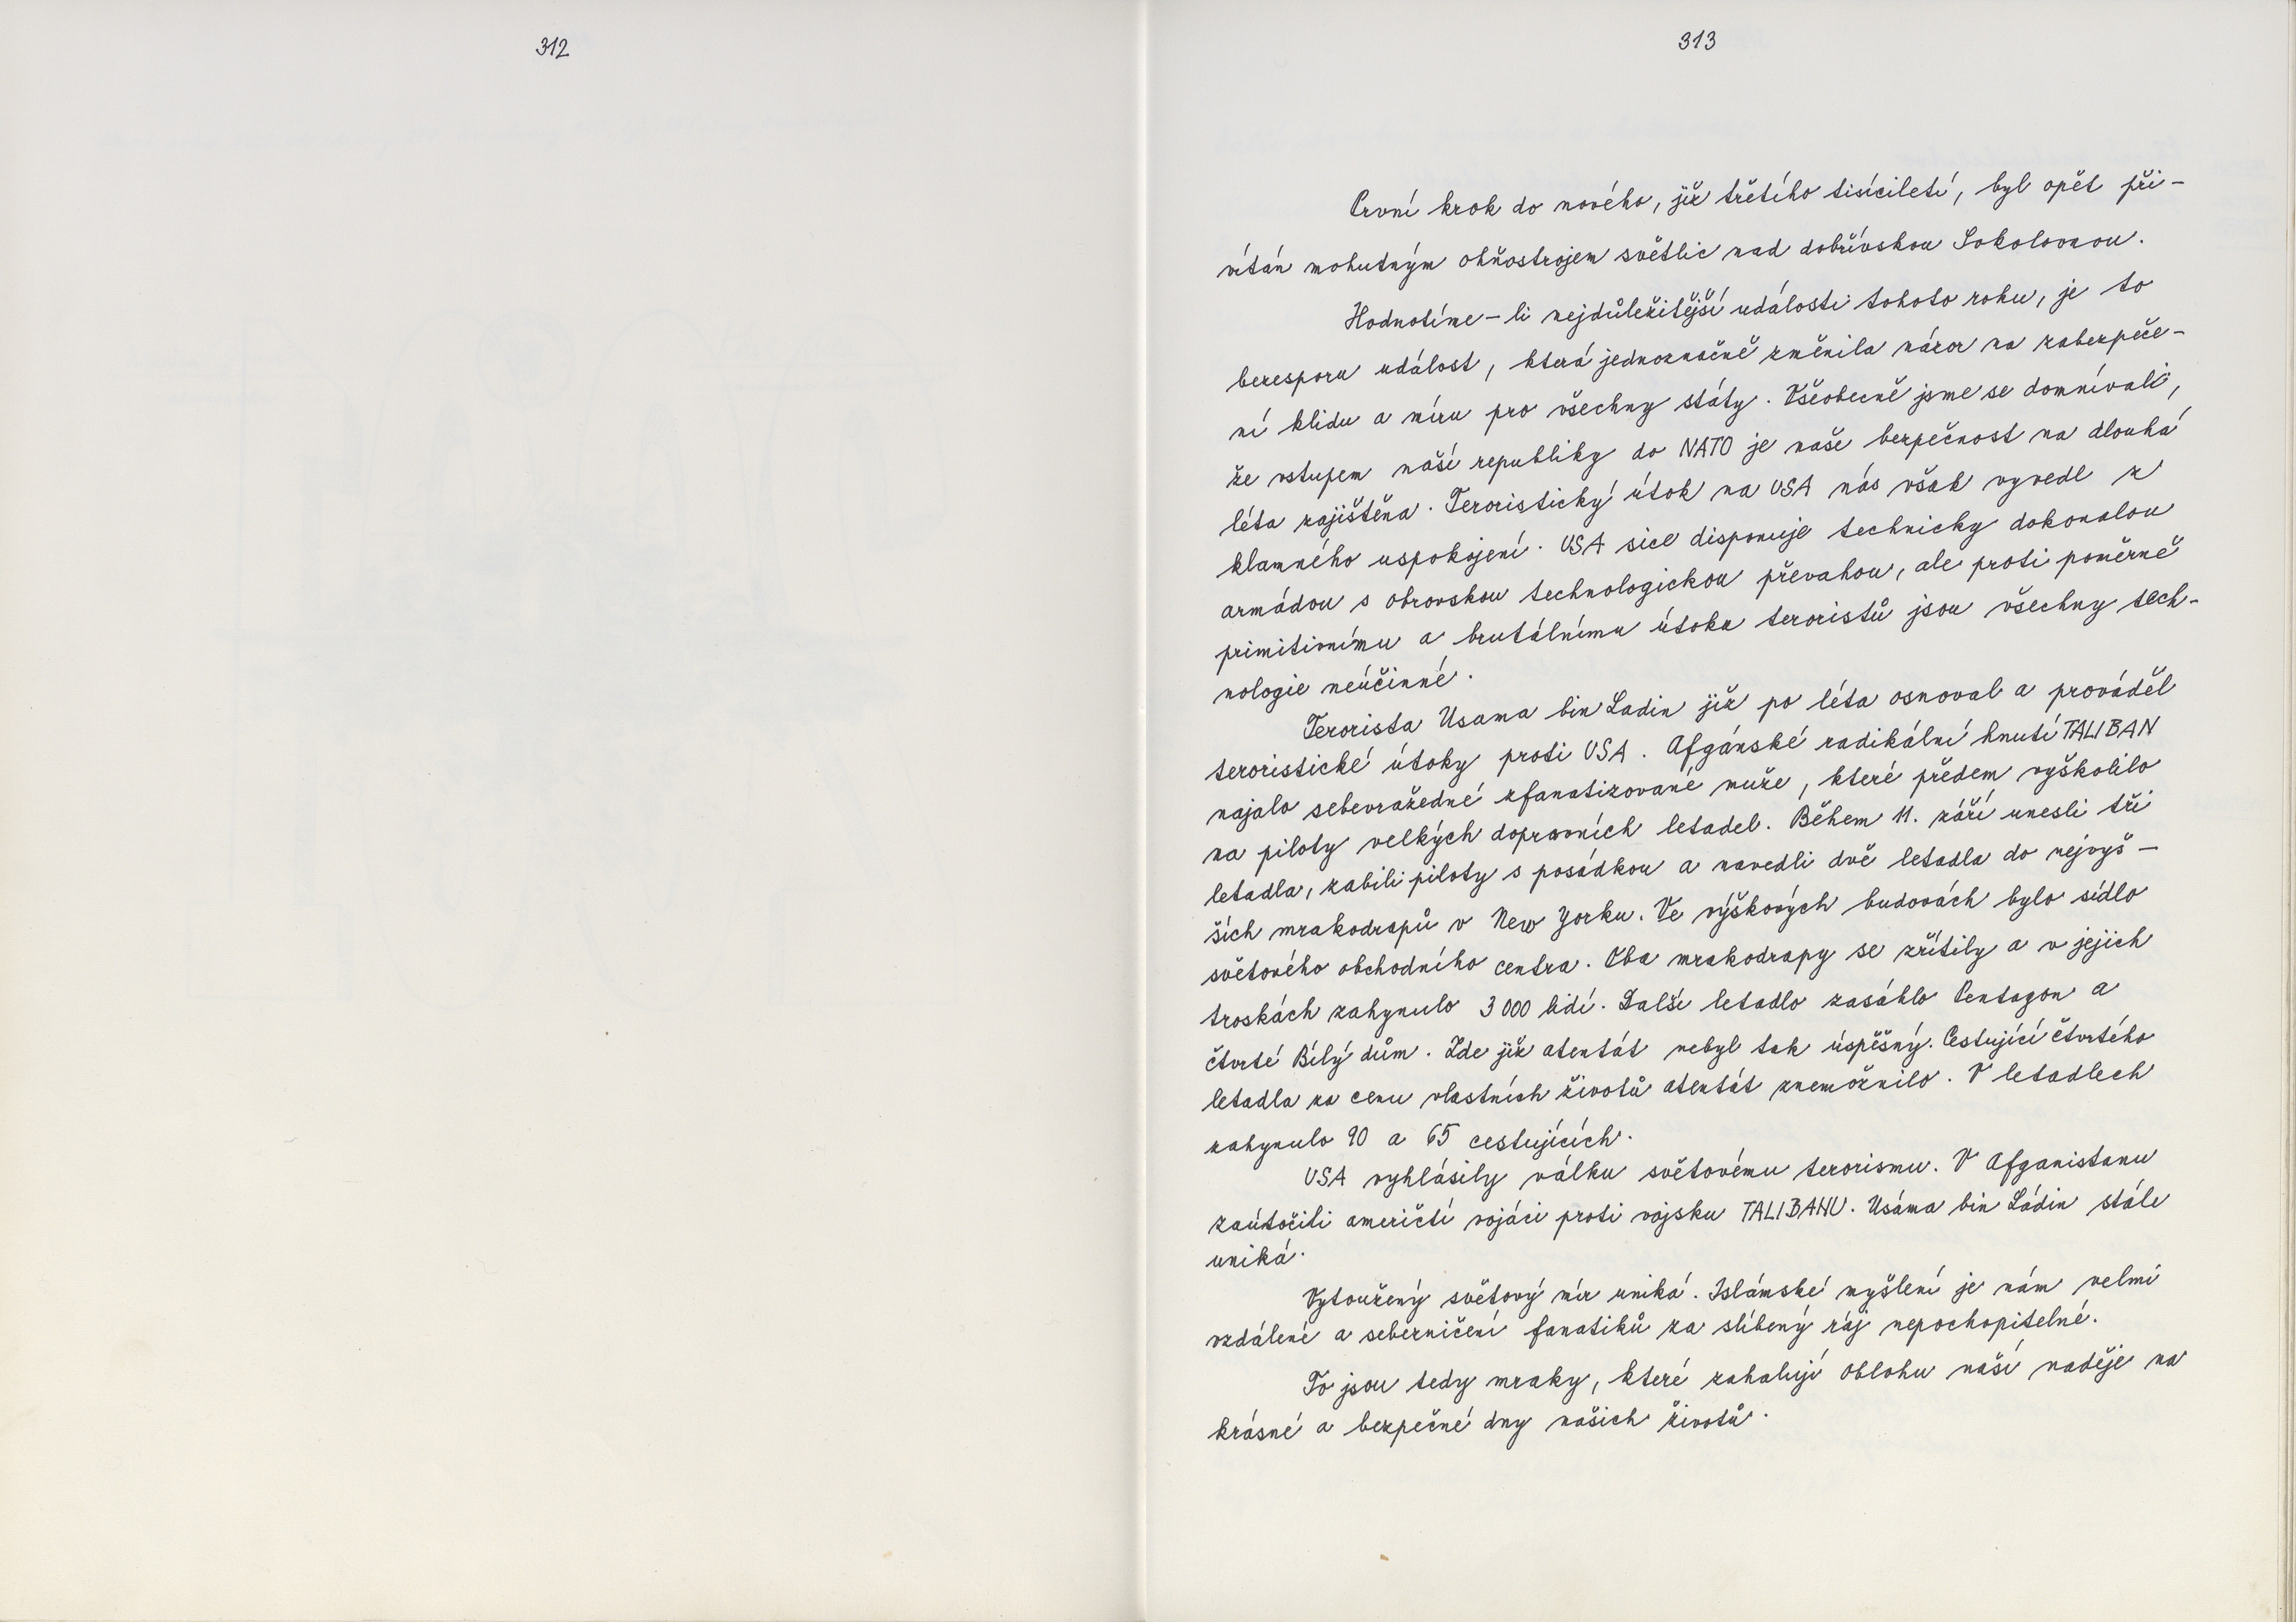 312
313
První krok do nového, již třetího tisíciletí, byl opět při-
vítán mohutným ohňostrojem světlic nad dobřívskou Sokolovnou.
Hodnotíme-li nejdůležitější události tohoto roku, je to
bezesporu událost, která jednoznačně změnila názor na zabezpeče-
ní klidu a míru pro všechny státy. Všeobecně jsme se domnívali,
že vstupem naší republiky do NATO je naše bezpečnost na dlouhá
léta zajištěna. Teroristický útok na USA nás však vyvedl z
klamného uspokojení. USA sice disponuje technicky dokonalou
armádou s obrovskou technologickou převahou, ale proti poměrně
primitivnímu a brutálnímu útoku teroristů jsou všechny tech-
nologie neúčinné.
Terorista Usama bin Ladin již po léta osnoval a prováděl
teroristické útoky proti USA. Afgánské radikální hnutí TALIBAN
najalo sebevražedné zfanatizované muže, které předem vyškolilo
na piloty velkých dopravních letadel. Během 11. září unesli tři
letadla, zabili piloty s posádkou a navedli dvě letadla do nejvyš-
ších mrakodrapů v New Yorku. Ve výškových budovách bylo sídlo
světového obchodního centra. Oba mrakodrapy se zřítily a v jejich
troskách zahynulo 3 000 lidí. Další letadlo zasáhlo Pentagon a
čtvrté Bílý dům. Zde již atentát nebyl tak úspěšný. Cestující čtvrtého
letadla za cenu vlastních životů atentát znemožnilo. V letadlech
zahynulo 90 a 65 cestujících.
USA vyhlásily válku světovému terorismu. V Afganistanu
zaútočili američtí vojáci proti vojsku TALIBANU. Usáma bin Ládin stále
uniká.
Vytoužený světový mír uniká. Islámské myšlení je nám velmi
vzdálené a sebezničení fanatiků za slíbený ráj nepochopitelné.
To jsou tedy mraky, které zahalují oblohu naší naděje na
krásné a bezpečné dny našich životů.